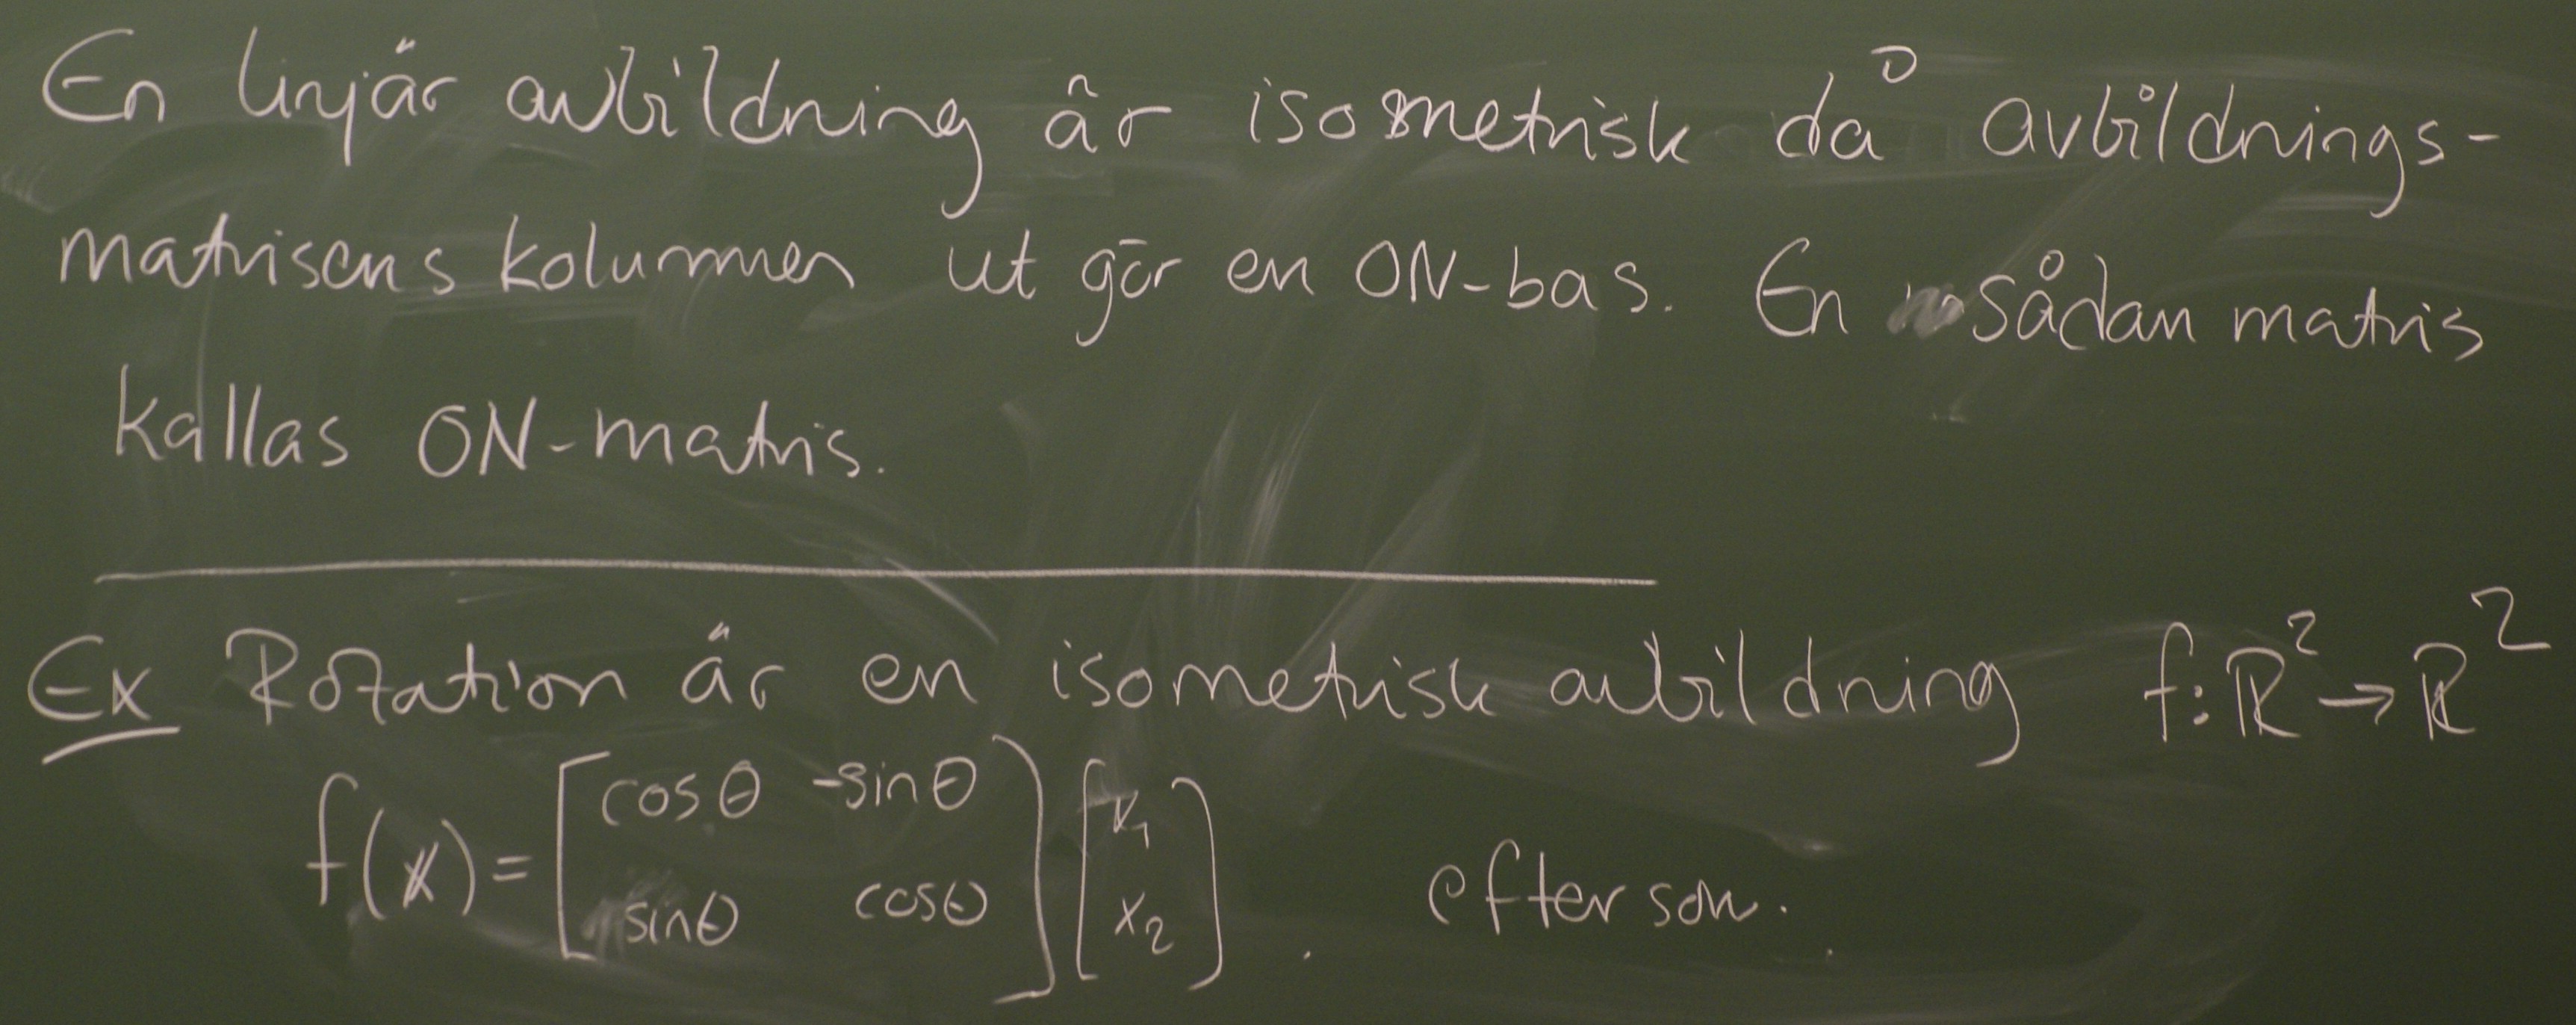 En linjär avbildning är isometrisk då avbildnings-
matrisens kolumner ut gör en ON-bas. En sådan matris
kallas ON-matris.
Ex Rotation är en isometrisk avbildning f: ℝ² → ℝ²
f(x) = [cosθ -sinθ; sinθ cosθ] [x₁; x₂]. eftersom.